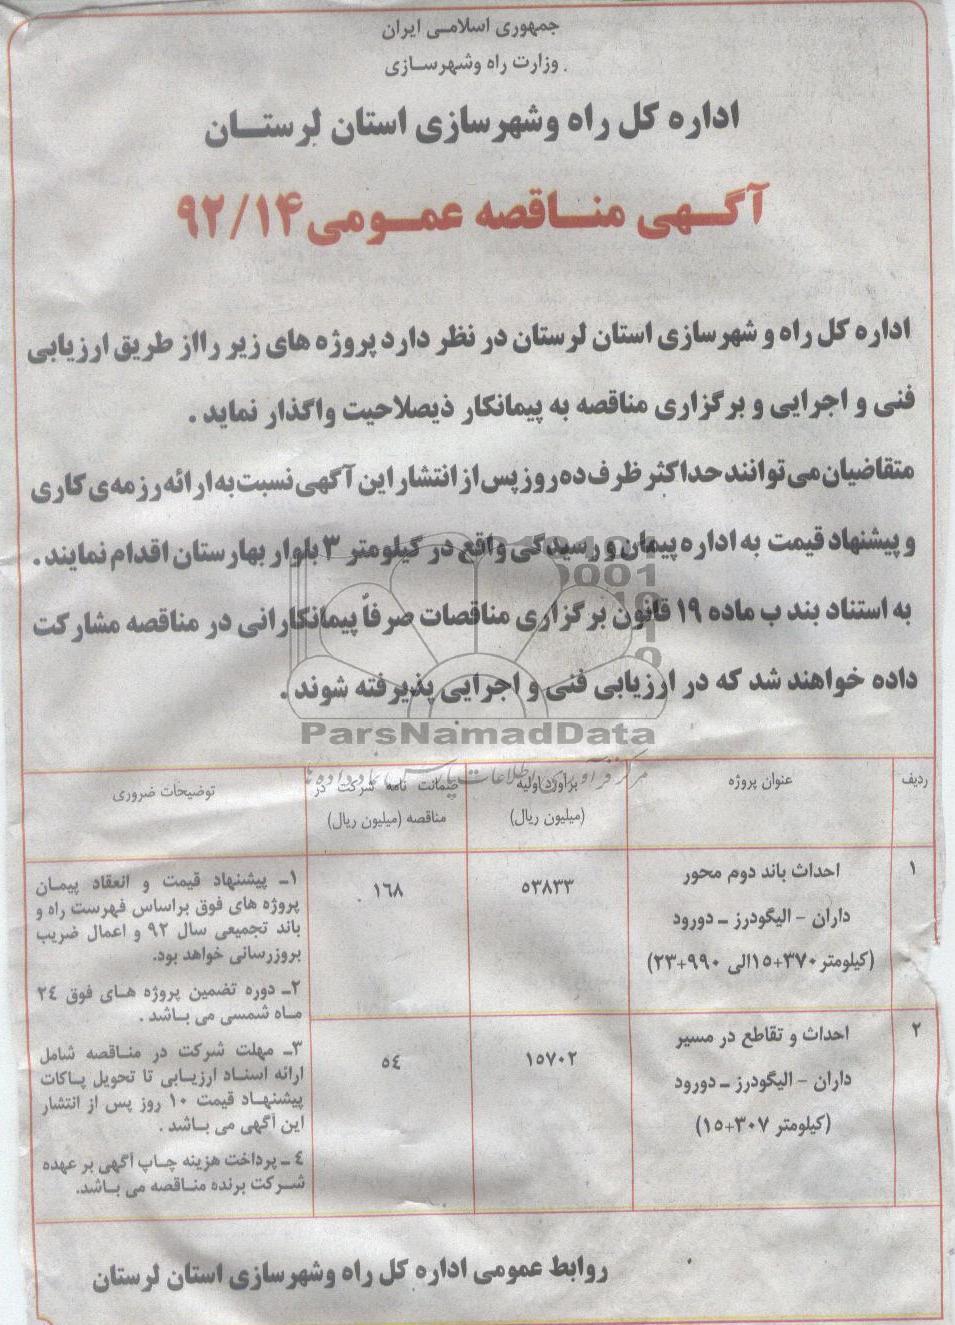 جمهوری اسلامـی ایران
وزارت راه وشهرسـازی
اداره کل راه وشهرسازی استان لرستـان
آگـهی منـاقصه عمـومی ۹۲/۱۴
اداره کل راه و شهرسازی استان لرستان در نظر دارد پروژه های زیر رااز طریق ارزیابی
فنی و اجرایی و برگزاری مناقصه به پیمانکار ذیصلاحیت واگذار نماید .
متقاضیان می توانند حداکثر ظرف ده روز پس از انتشار این آگهی نسبت به ارائه رزمه ی کاری
و پیشنهاد قیمت به اداره پیمان و رسیدگی واقع در کیلومتر ۳ بلوار بهارستان اقدام نمایند .
به استناد بند ب ماده ۱۹ قانون برگزاری مناقصات صرفاً پیمانکارانی در مناقصه مشارکت
داده خواهند شد که در ارزیابی فنی و اجرایی پذیرفته شوند .
ParsNamadData
مرکز فرآوری اطلاعات پارس نماد داده ها
ردیف
عنوان پروژه
برآورد اولیه
(میلیون ریال)
ضمانت نامه شرکت در
مناقصه (میلیون ریال)
توضیحات ضروری
۱
احداث باند دوم محور
داران - الیگودرز ــ دورود
(کیلومتر ۳۷۰+۱۵ الی ۹۹۰+۲۳)
۵۳۸۳۳
۱۶۸
۲
احداث و تقاطع در مسیر
داران - الیگودرز ــ دورود
(کیلومتر ۳۰۷+۱۵)
۱۵۷۰۲
۵٤
۱ـ پیشنهاد قیمت و انعقاد پیمان
پروژه های فوق براساس فهرست راه و
باند تجمیعی سال ۹۲ و اعمال ضریب
بروزرسانی خواهد بود.
۲ـ دوره تضمین پروژه هـای فوق ۲٤
مـاه شمسی می بـاشد .
۳ـ مهلت شرکت در منـاقصه شامل
ارائه اسناد ارزیـابی تا تحویل پـاکات
پیشنهـاد قیمت ۱۰ روز پس از انتشار
این آگهی می بـاشد .
٤ ـ پرداخت هزینه چـاپ آگهی بر عهده
شـرکت برنده مناقصه می بـاشد.
روابط عمومی اداره کل راه وشهرسازی استان لرستان